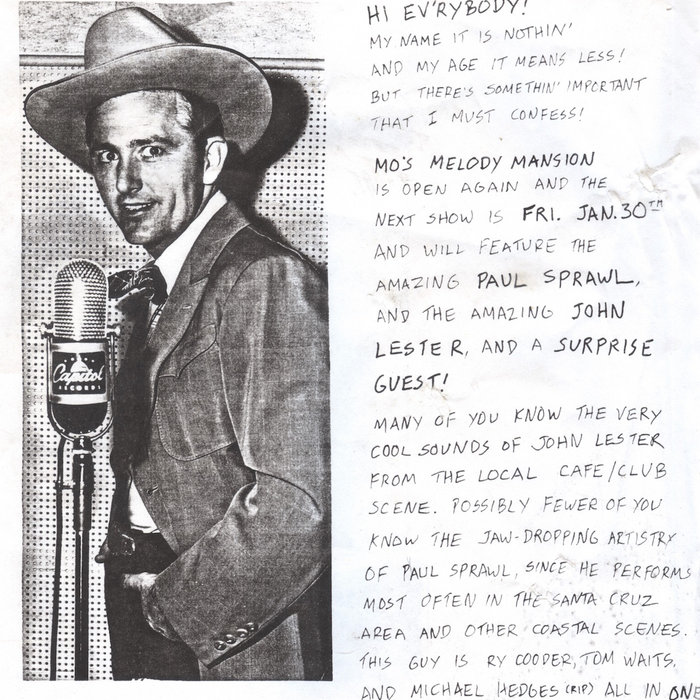 Capitol
RECORDS
HI EV'RYBODY!
MY NAME IT IS NOTHIN'
AND MY AGE IT MEANS LESS!
BUT THERE'S SOMETHIN' IMPORTANT
THAT I MUST CONFESS!
MO'S MELODY MANSION
IS OPEN AGAIN AND THE
NEXT SHOW IS FRI. JAN. 30TH
AND WILL FEATURE THE
AMAZING PAUL SPRAWL,
AND THE AMAZING JOHN
LESTER, AND A SURPRISE
GUEST!
MANY OF YOU KNOW THE VERY
COOL SOUNDS OF JOHN LESTER
FROM THE LOCAL CAFE/CLUB
SCENE. POSSIBLY FEWER OF YOU
KNOW THE JAW-DROPPING ARTISTRY
OF PAUL SPRAWL, SINCE HE PERFORMS
MOST OFTEN IN THE SANTA CRUZ
AREA AND OTHER COASTAL SCENES.
THIS GUY IS RY COODER, TOM WAITS,
AND MICHAEL HEDGES (RIP) ALL IN